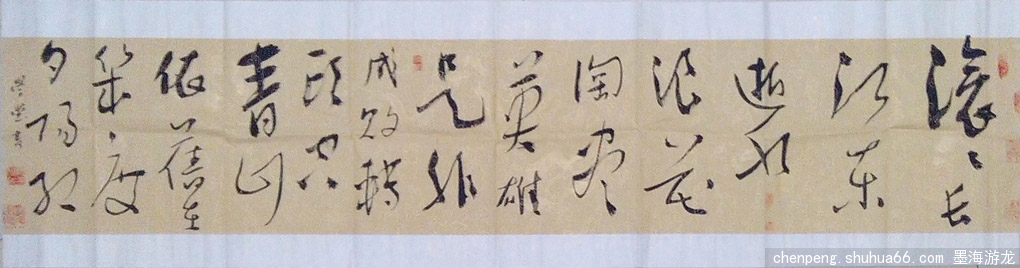 滚滚长
江东
逝水
浪花
淘尽
英雄
是非
成败转
头空
青山
依旧在
几度
夕阳红
chenpeng.shuhua66.com 墨海游龙